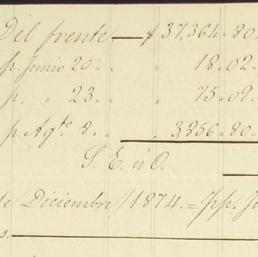 Del frente — $ 37,364.80
p. Junio 20. " " 18.02.
p. " 23. " " 75.09.
p. Agto 8. " 3,856.80.
S. E. ú O.
de Diciembre / 1874. = Pp. J
s.